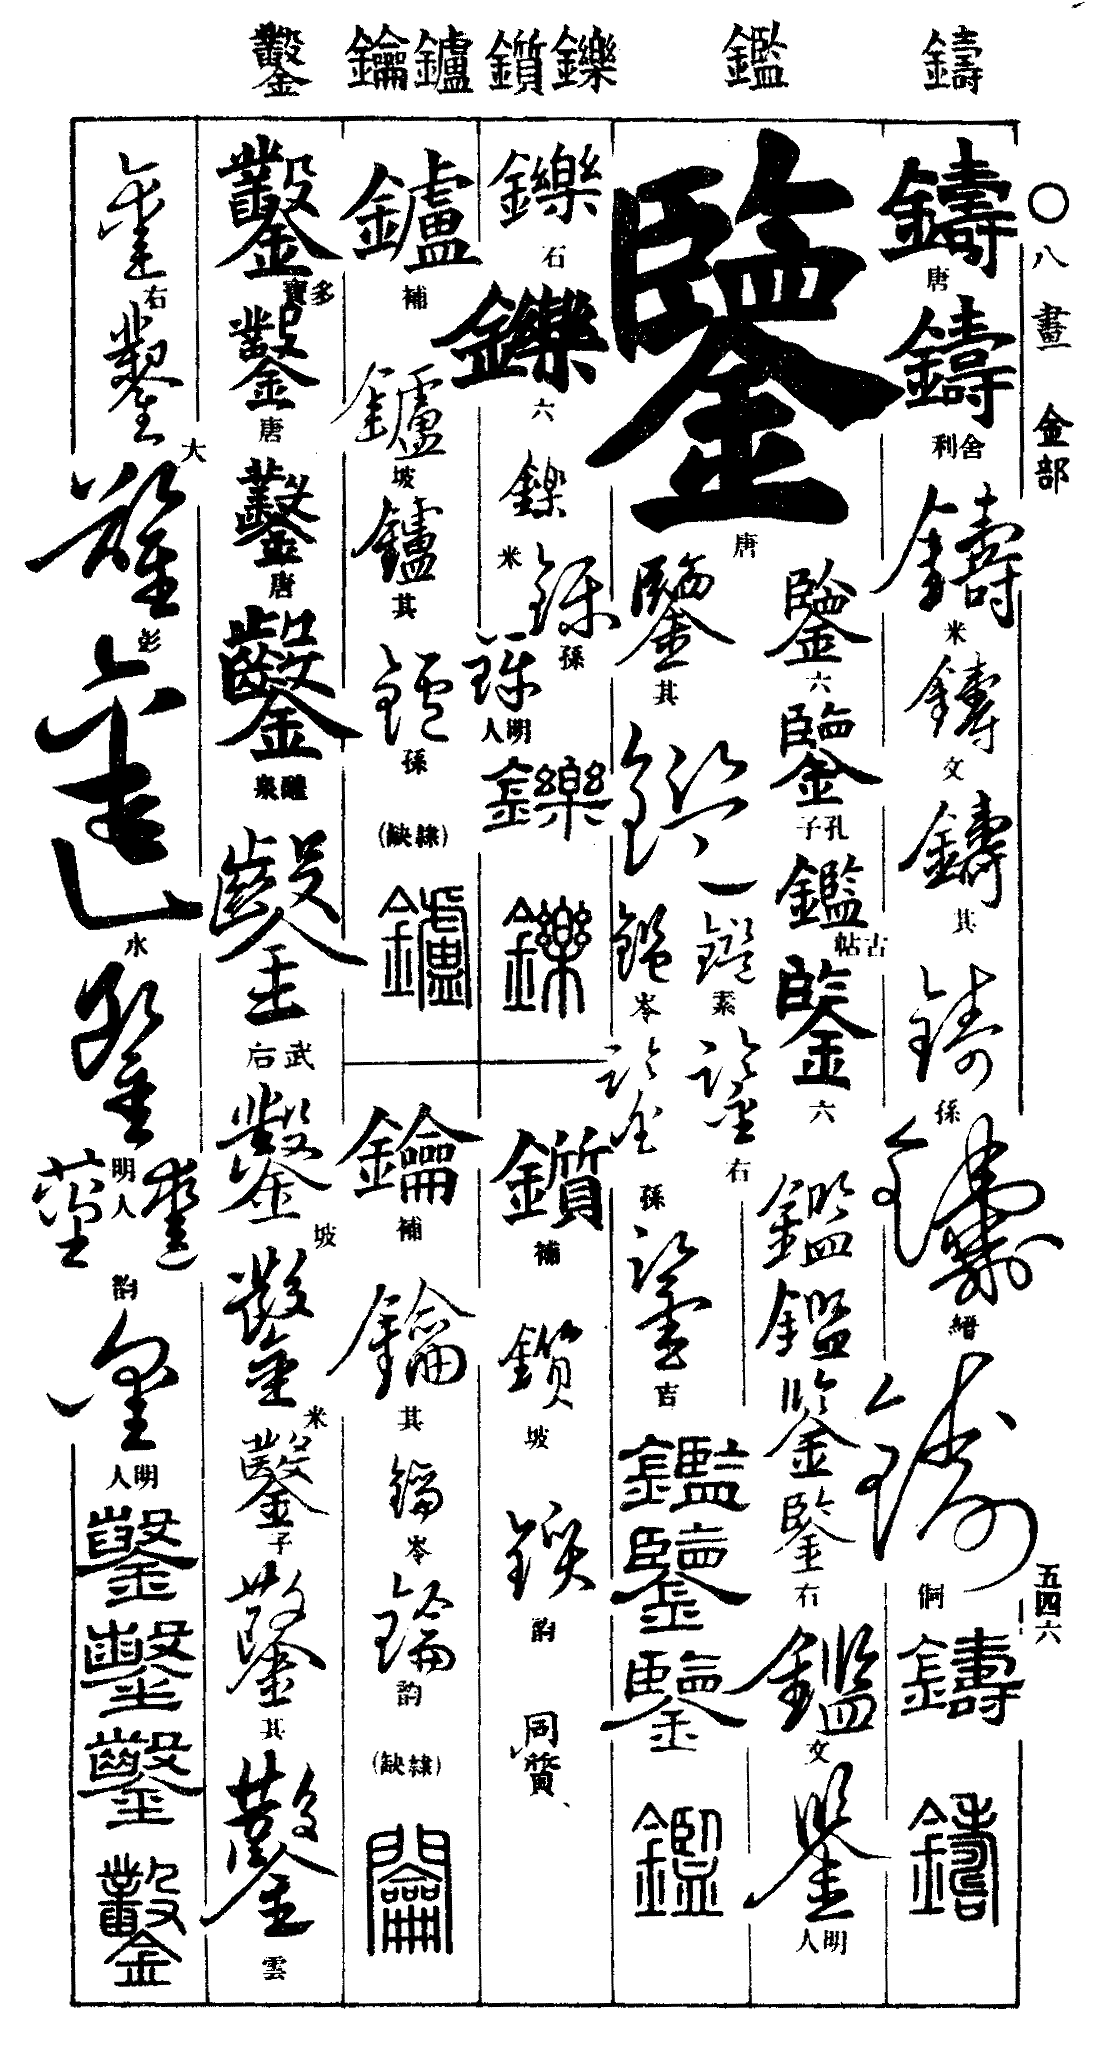 鑄
鑑
鑠
鑕
鑪
鑰
鑿
〇八畫 金部
五四六
鑄 唐
鑄 舍利
鑄 米
鑄 文
鑄 其
鑄 孫
鑄
鑄
鑄
鑄
鑒 唐
鑒 六
鑒 孔子
鑑 古帖
鑒 六
鑑
鑑
鑒
鑒 右
鑑 文
鑒 明人
鑒 其
鑑
鑑 素
鑑 岑
鑒 右
鑒 孫
鑒 吉
鑑
鑒
鑒
鑑
鑠 石
鑠 六
鑠 米
鑠 孫
鑠 明人
鑠
鑠
鑕 補
鑕 坡
鑕 韵
同質
鑪 補
鑪 坡
鑪 其
鑪 孫
(隸缺)
鑪
鑰 補
鑰 其
鑰 岑
鑰 韵
(隸缺)
鑿 多寶
鑿 唐
鑿 唐
鑿 醴泉
鑿 武后
鑿 坡
鑿 米
鑿 子
鑿 其
鑿 雲
鑿 右
鑿 大
鑿 彭
鑿 水
鑿 明人
鑿
鑿 韵
鑿 明人
鑿
鑿
鑿
鑿